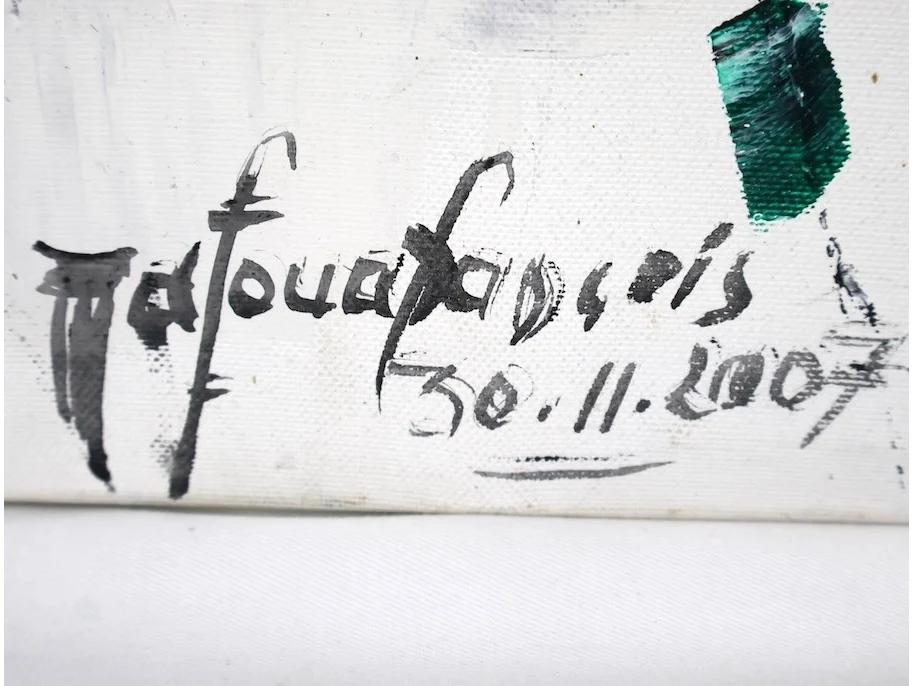 Mafoua françois
30.11.2007